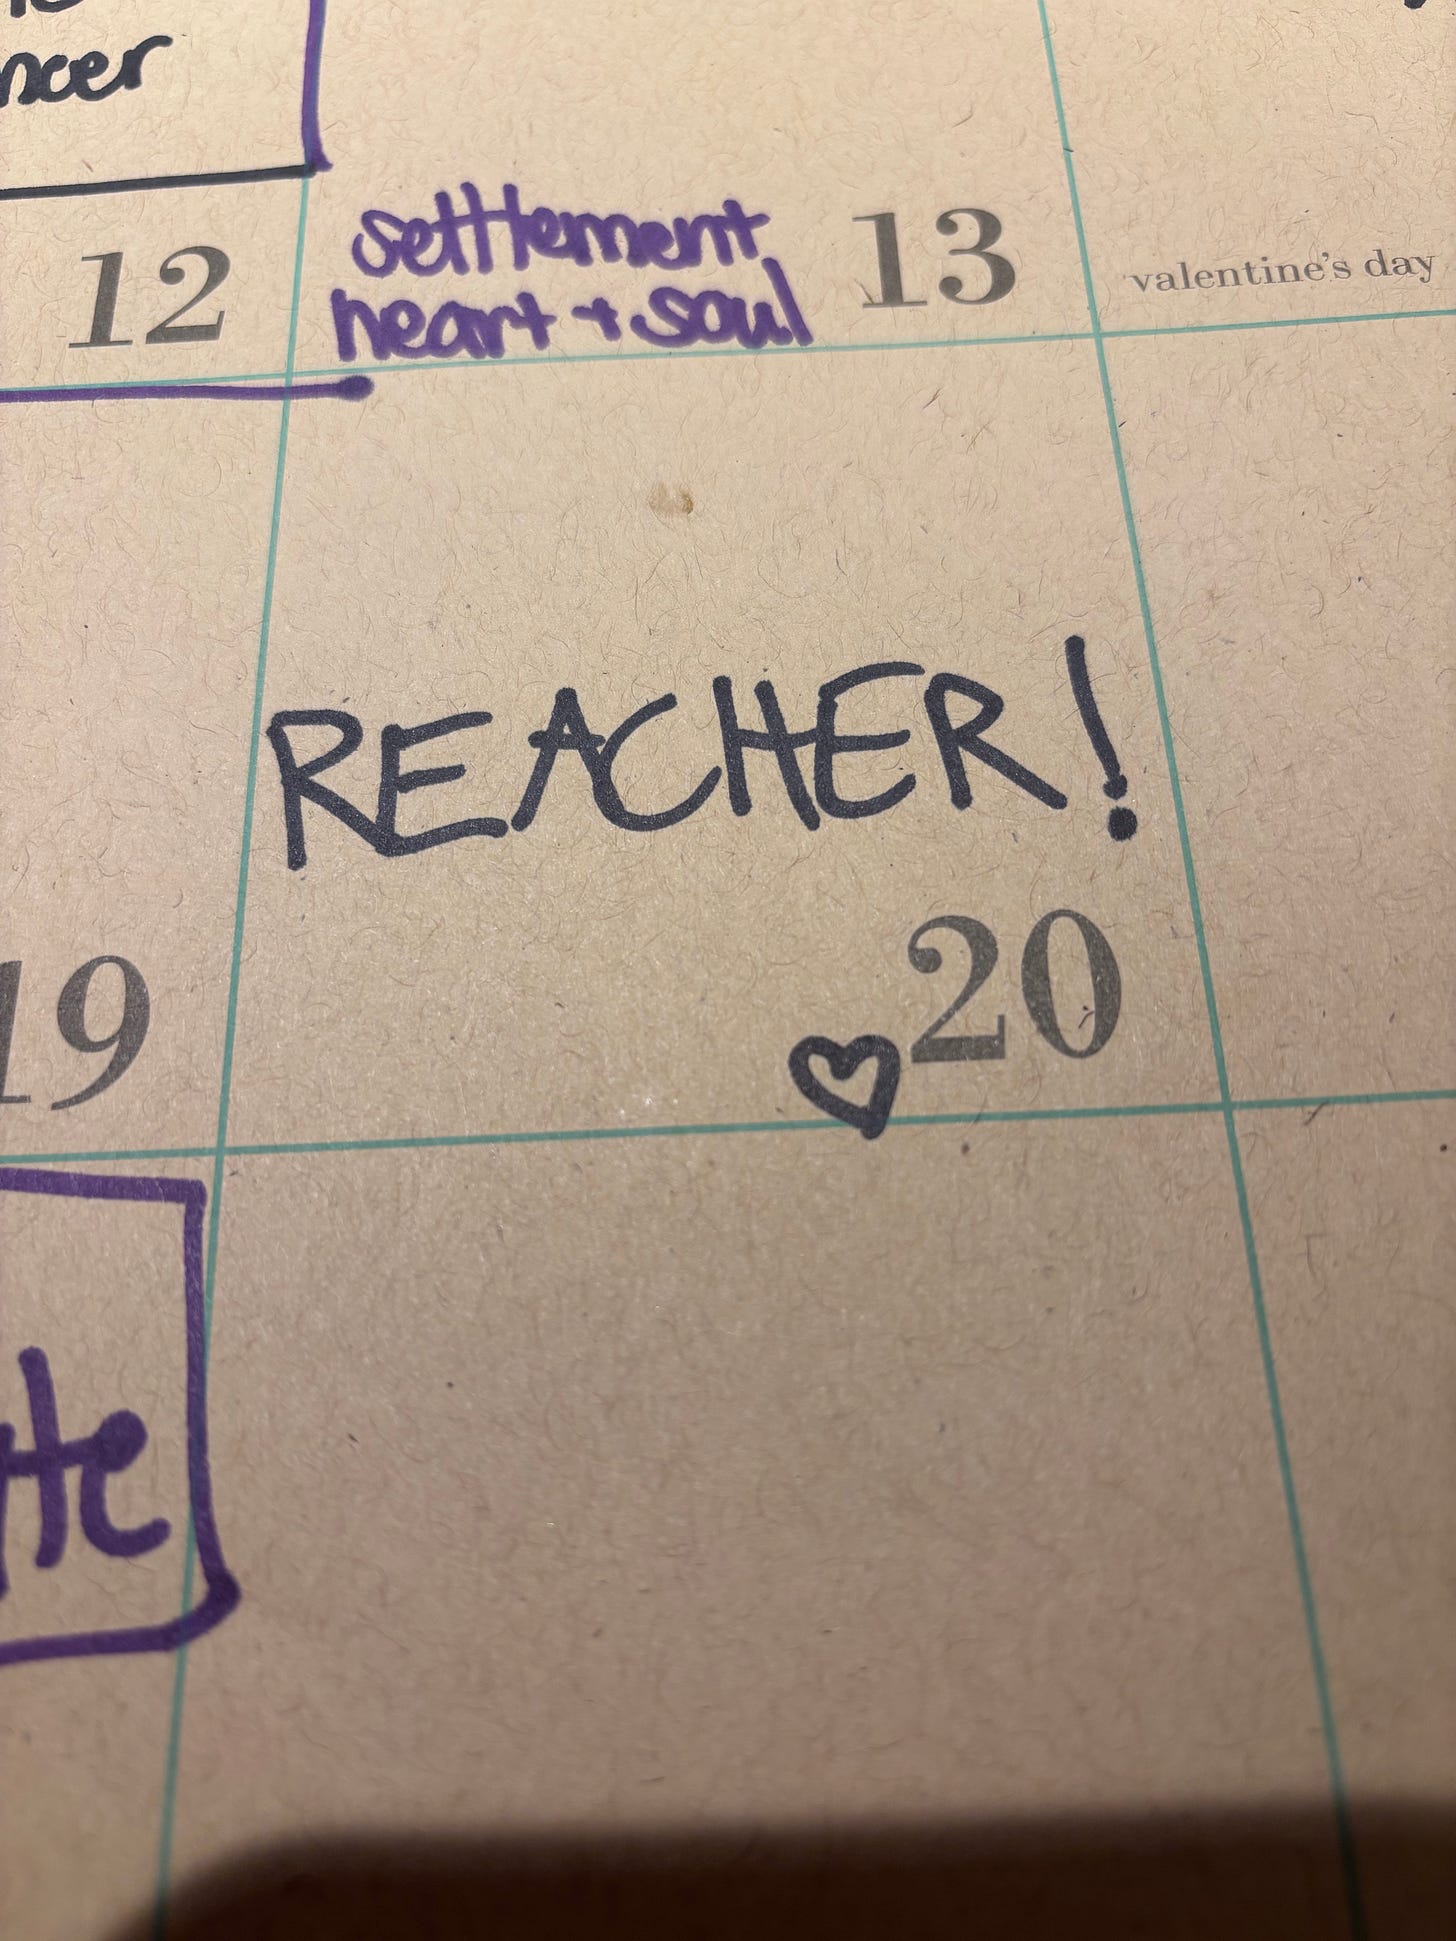 ncer
12
settlement
heart + soul
13
valentine's day
REACHER!
19
20